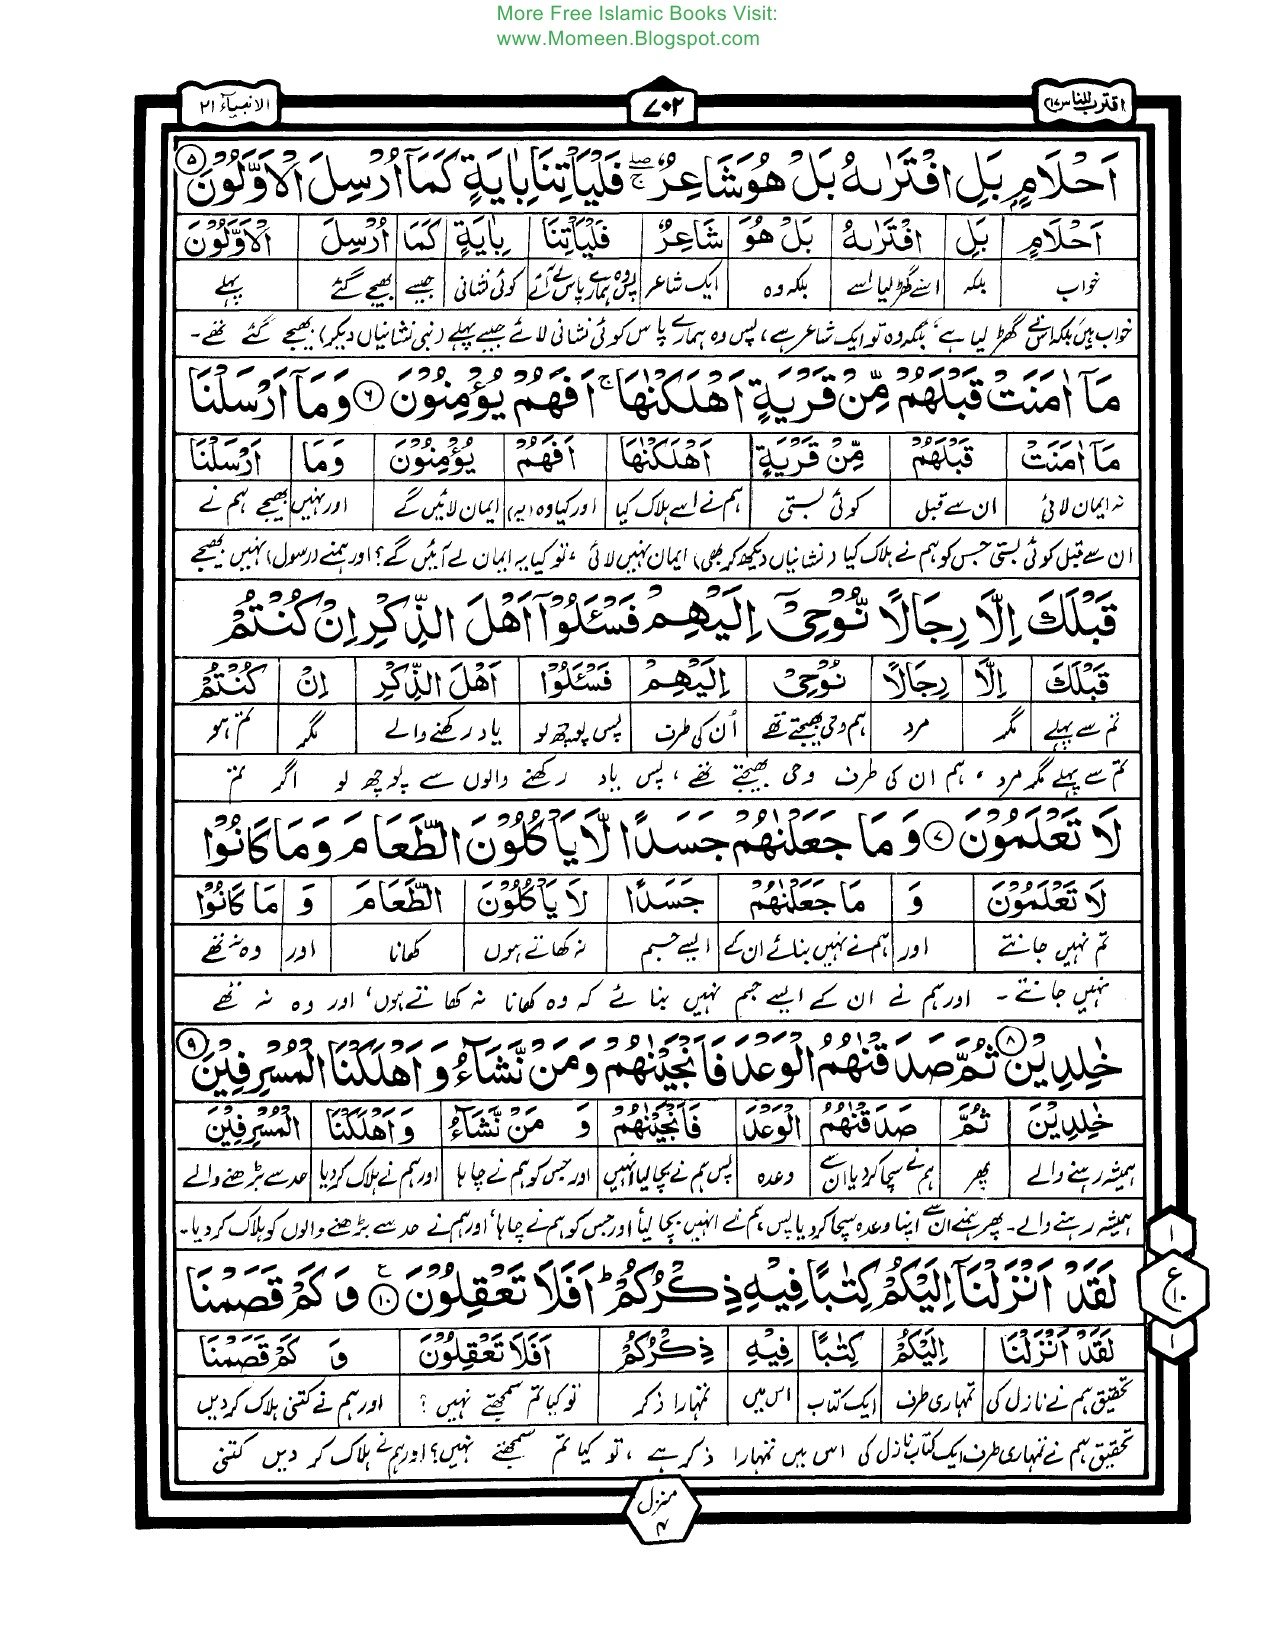 More Free Islamic Books Visit:
www.Momeen.Blogspot.com
اقترب للناس ١٧
٧٠٢
الانبیآء ٢١
اَحْلَامٍۭ بَلِ افْتَرٰىهُ بَلْ هُوَ شَاعِرٌ ۖۚ فَلْيَاْتِنَا بِاٰيَةٍ كَمَآ اُرْسِلَ الْاَوَّلُوْنَ ۵
اَحْلَامٍ بَلِ افْتَرٰىهُ بَلْ هُوَ شَاعِرٌ فَلْيَاْتِنَا بِاٰيَةٍ كَمَا اُرْسِلَ الْاَوَّلُوْنَ
خواب بلکہ اسنے گھڑ لیا اسے بلکہ وہ ایک شاعر پس وہ ہمارے پاس لے آئے کوئی نشانی جیسے بھیجے گئے پہلے
خواب ہیں بلکہ اسنے گھڑ لیا ہے، بلکہ وہ تو ایک شاعر ہے، پس وہ ہمارے پاس کوئی نشانی لائے جیسے پہلے (نبی نشانیاں دیکر) بھیجے گئے تھے۔
مَآ اٰمَنَتْ قَبْلَهُمْ مِّنْ قَرْيَةٍ اَهْلَكْنٰهَا ۚ اَفَهُمْ يُؤْمِنُوْنَ ۶ وَمَآ اَرْسَلْنَا
مَآ اٰمَنَتْ قَبْلَهُمْ مِّنْ قَرْيَةٍ اَهْلَكْنٰهَا اَفَهُمْ يُؤْمِنُوْنَ وَمَا اَرْسَلْنَا
نہ ایمان لائی ان سے قبل کوئی بستی ہم نے اسے ہلاک کیا اور کیا وہ (یہ) ایمان لائیں گے اور نہیں بھیجے ہم نے
ان سے قبل کوئی بستی جس کو ہم نے ہلاک کیا (نشانیاں دیکھ کر بھی) ایمان نہیں لائی، تو کیا یہ ایمان لے آئیں گے؟ اور ہمنے (رسول) نہیں بھیجے
قَبْلَكَ اِلَّا رِجَالًا نُّوْحِيْٓ اِلَيْهِمْ فَسْـَٔلُوْٓا اَهْلَ الذِّكْرِ اِنْ كُنْتُمْ
قَبْلَكَ اِلَّا رِجَالًا نُوْحِيْ اِلَيْهِمْ فَسْـَٔلُوْا اَهْلَ الذِّكْرِ اِنْ كُنْتُمْ
تم سے پہلے مگر مرد ہم وحی بھیجتے تھے اُن کی طرف پس پوچھ لو یاد رکھنے والے مگر تم ہو
تم سے پہلے مگر مرد، ہم ان کی طرف وحی بھیجتے تھے، پس یاد رکھنے والوں سے پوچھ لو اگر تم
لَا تَعْلَمُوْنَ ۷ وَمَا جَعَلْنٰهُمْ جَسَدًا لَّا يَاْكُلُوْنَ الطَّعَامَ وَمَا كَانُوْا
لَا تَعْلَمُوْنَ وَ مَا جَعَلْنٰهُمْ جَسَدًا لَا يَاْكُلُوْنَ الطَّعَامَ وَ مَا كَانُوْا
تم نہیں جانتے اور ہم نے نہیں بنائے ان کے ایسے جسم نہ کھاتے ہوں کھانا اور وہ نہ تھے
نہیں جانتے۔ اور ہم نے ان کے ایسے جسم نہیں بنائے کہ وہ کھانا نہ کھاتے ہوں، اور وہ نہ تھے
خٰلِدِيْنَ ۸ ثُمَّ صَدَقْنٰهُمُ الْوَعْدَ فَاَنْجَيْنٰهُمْ وَمَنْ نَّشَآءُ وَاَهْلَكْنَا الْمُسْرِفِيْنَ ۹
خٰلِدِيْنَ ثُمَّ صَدَقْنٰهُمُ الْوَعْدَ فَاَنْجَيْنٰهُمْ وَ مَنْ نَّشَآءُ وَاَهْلَكْنَا الْمُسْرِفِيْنَ
ہمیشہ رہنے والے پھر ہم نے سچا کر دیا ان سے وعدہ پس ہم نے بچا لیا انہیں اور جس کو ہم نے چاہا اور ہم نے ہلاک کر دیا حد سے بڑھنے والے
ہمیشہ رہنے والے۔ پھر ہمنے ان سے اپنا وعدہ سچا کر دیا پس ہم نے انہیں بچا لیا اور جس کو ہم نے چاہا، اور ہم نے حد سے بڑھنے والوں کو ہلاک کر دیا۔
لَقَدْ اَنْزَلْنَآ اِلَيْكُمْ كِتٰبًا فِيْهِ ذِكْرُكُمْ ؕ اَفَلَا تَعْقِلُوْنَ ۱۰ ع وَكَمْ قَصَمْنَا
۱
ع
۱۰
۱
لَقَدْ اَنْزَلْنَا اِلَيْكُمْ كِتٰبًا فِيْهِ ذِكْرُكُمْ اَفَلَا تَعْقِلُوْنَ وَ كَمْ قَصَمْنَا
تحقیق ہم نے نازل کی تمہاری طرف ایک کتاب اس میں تمہارا ذکر تو کیا تم سمجھتے نہیں؟ اور ہم نے کتنی ہلاک کر دیں
تحقیق ہم نے تمہاری طرف ایک کتاب نازل کی اس میں تمہارا ذکر ہے، تو کیا تم سمجھتے نہیں؟ اور ہم نے ہلاک کر دیں کتنی
منزل
۴